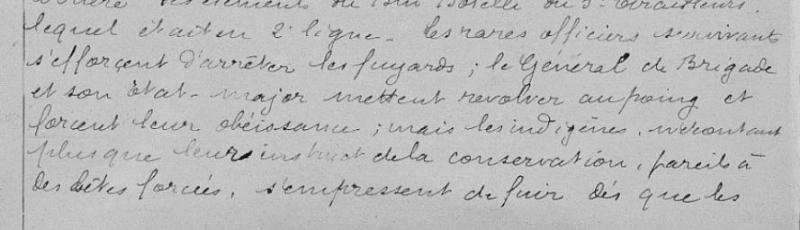 des éléments du Bon Botelle du 3e Tirailleurs.
lequel était en 2e ligne. Les rares officiers survivants
s'efforçent d'arrêter les fuyards ; le Général de Brigade
et son Etat-major mettent revolver au poing et
forcent leur obéissance ; mais les indigènes, n'écoutant
plus que leurs instinct de la conservation, pareils à
des bêtes forcées, s'empressent de fuir dès que les